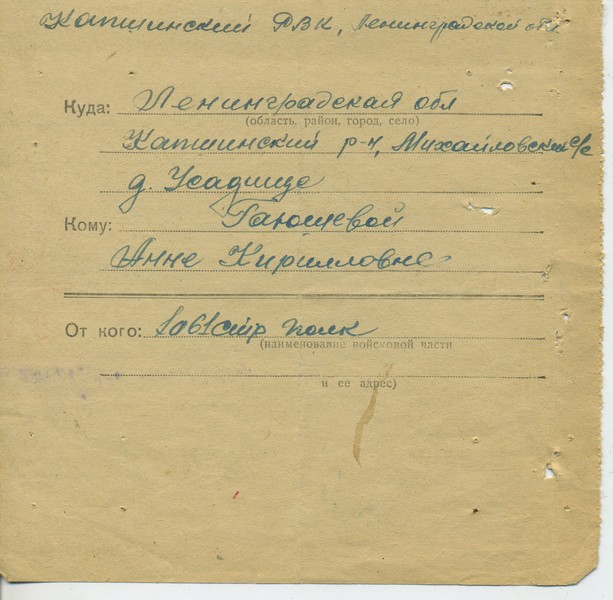 Капшинский РВК, Ленинградской обл
Куда: Ленинградская обл
(область, район, город, село)
Капшинский р-н, Михайловский с/с
д. Усадище
Кому: Гагощевой
Анне Кирилловне
От кого: 1061 стр полк
(наименование войсковой части
и ее адрес)